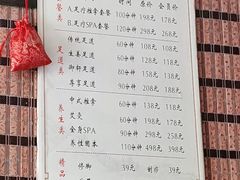 时间 原价 会员价
A.足疗推拿套餐 100分钟 198元 178元
B.足疗SPA套餐 120分钟 298元 268元
足道类
传统足道 60分钟 108元
生姜足道 60分钟 128元
御轩足道 80分钟 158元
尊享足道 90分钟 208元
养生类
中式推拿 60分钟 138元 118元
艾灸 60分钟 198元 178元
全身SPA 90分钟 298元 258元
养性固本 110分钟 498元 438元
精品
修脚 39元 刮痧 39元